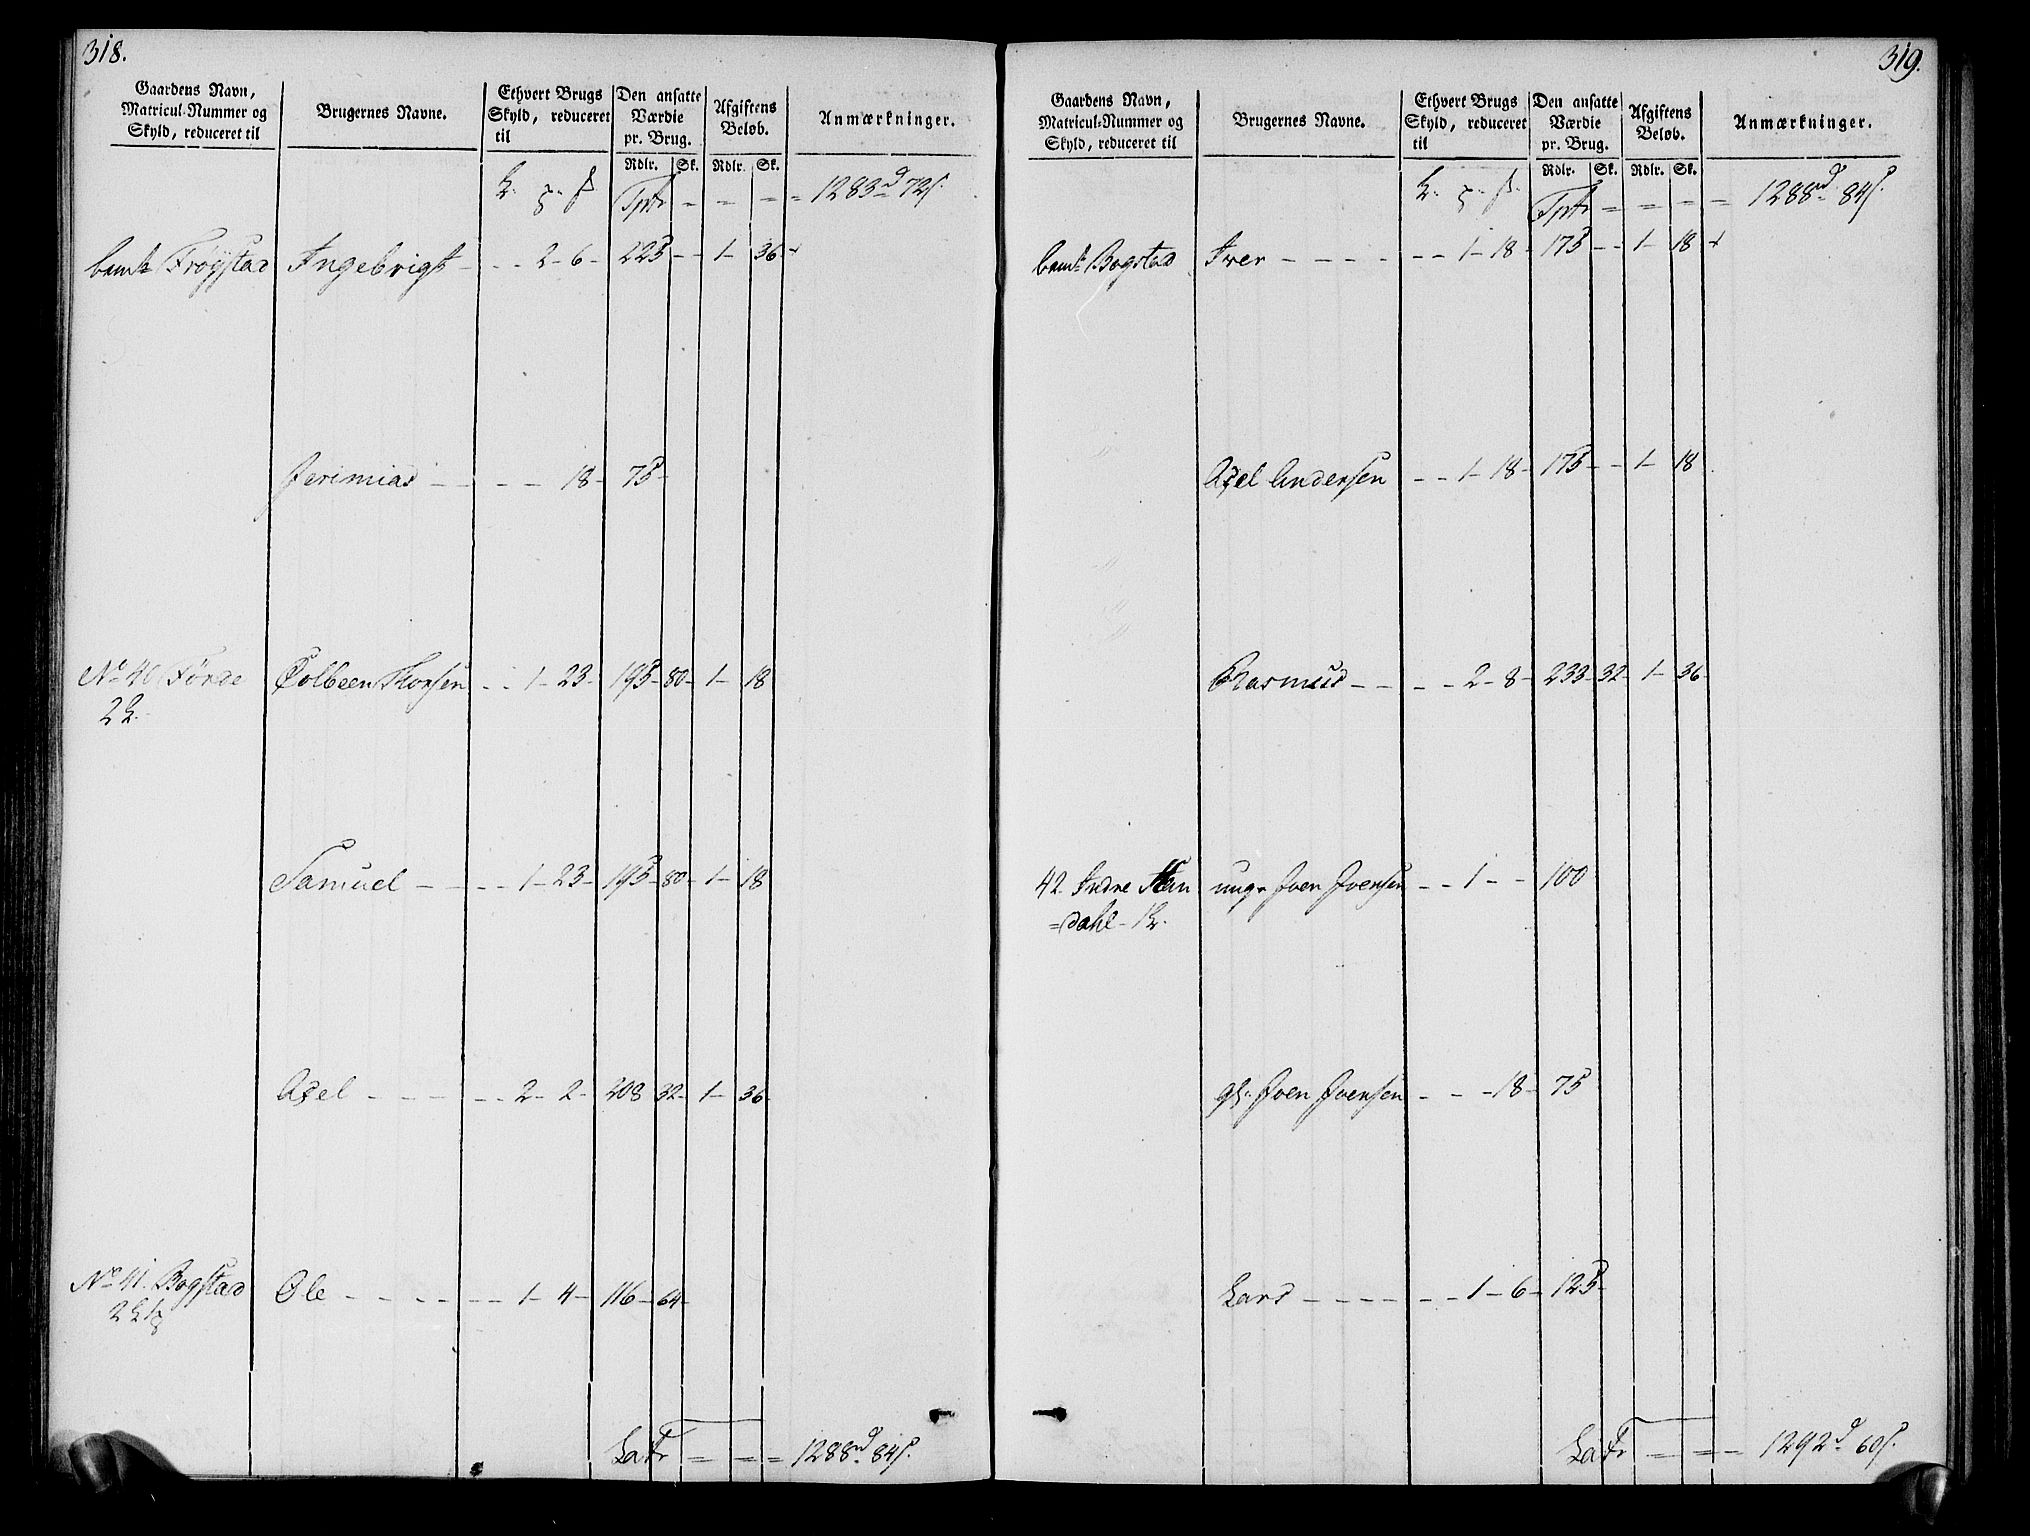 318.
Gaardens Navn, Matricul-Nummer og Skyld, reduceret til
Brugernes Navne.
Ethvert Brugs Skyld, reduceret til
Den ansatte Værdie pr. Brug.
Afgiftens Beløb.
Anmærkninger.
Rdlr. Sk. Rdlr. Sk.
Tptr - - - = 1283 rd 72 s.
Frøystad Ingebrigt - - - 2 - 6 - 225 - - 1 - 36 -
Jerimias - - - - 18 - 75 -
No 40 Førde Colbeen Thorsen - - 1 - 23 - 195 - 80 - 1 - 18
2
Samuel - - - - 1 - 23 - 195 - 80 - 1 - 18
Axel - - - - - 2 - 2 - 208 32 - 1 - 36 -
No 41. Bogstad Ole - - - - - - 1 - 4 - 116 - 64 -
2
LaTr = = = 1288 rd 84 s.
319.
Gaardens Navn, Matricul-Nummer og Skyld, reduceret til
Brugernes Navne.
Ethvert Brugs Skyld, reduceret til
Den ansatte Værdie pr. Brug.
Afgiftens Beløb.
Anmærkninger.
Rdlr. Sk. Rdlr. Sk.
Tptr = = = = = 1288 rd 84 s.
Bogstad Iver - - - - - - 1 - 18 - 175 - - 1 - 18
Axel Andersen - - 1 - 18 - 175 - - 1 - 18
Rasmus - - - - 2 - 8 - 233 - 32 - 1 - 36 -
42. Indre Stan unge Iver Iversen - - 1 - - 100
=dahl - 1
gl. Iver Iversen - - - 18 - 75
Lars - - - - - - 1 - 6 - 125 -
LaTr = = = 1292 rd 60 s.